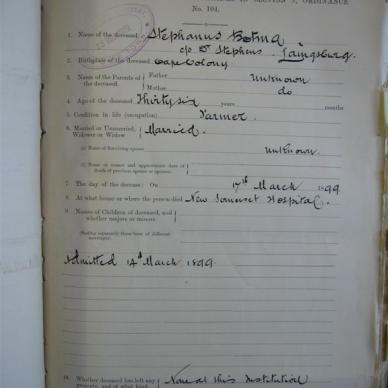 SECTION 9, ORDINANCE
No. 104.
1. Name of the deceased Stephanus Botma
c/o Dr Stephens, Laingsburg.
2. Birthplace of the deceased Cape Colony
3. Name of the Parents of the deceased. Father Unknown
Mother do
4. Age of the deceased Thirty six years months
5. Condition in life (occupation) Farmer.
6. Married or Unmarried, Widower or Widow Married.
(a) Name of Surviving spouse Unknown.
(b) Name or names and approximate date of death of previous spouse or spouses.
7. The day of the decease: On 17th March 1899
8. At what house or where the person died New Somerset Hospital.
9. Names of Children of deceased, and whether majors or minors.
(Stating separately those born of different marriages.)
Admitted 14th March 1899.
10. Whether deceased has left any property, and of what kind. None at this Institution